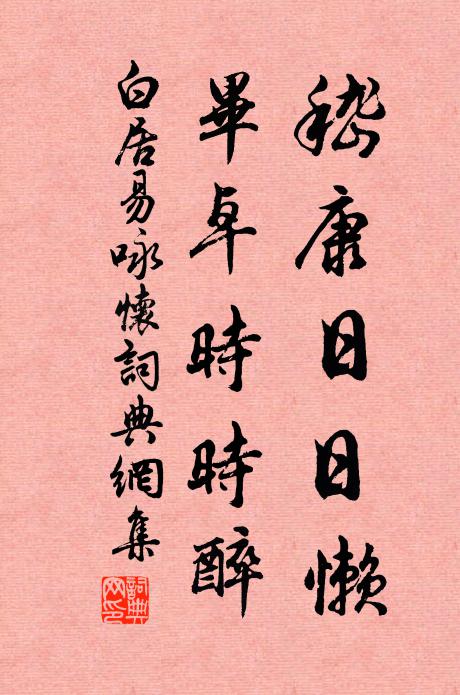 嵇康日日懶
畢卓時時醉
白居易詠懷詞典網集
詞典網印